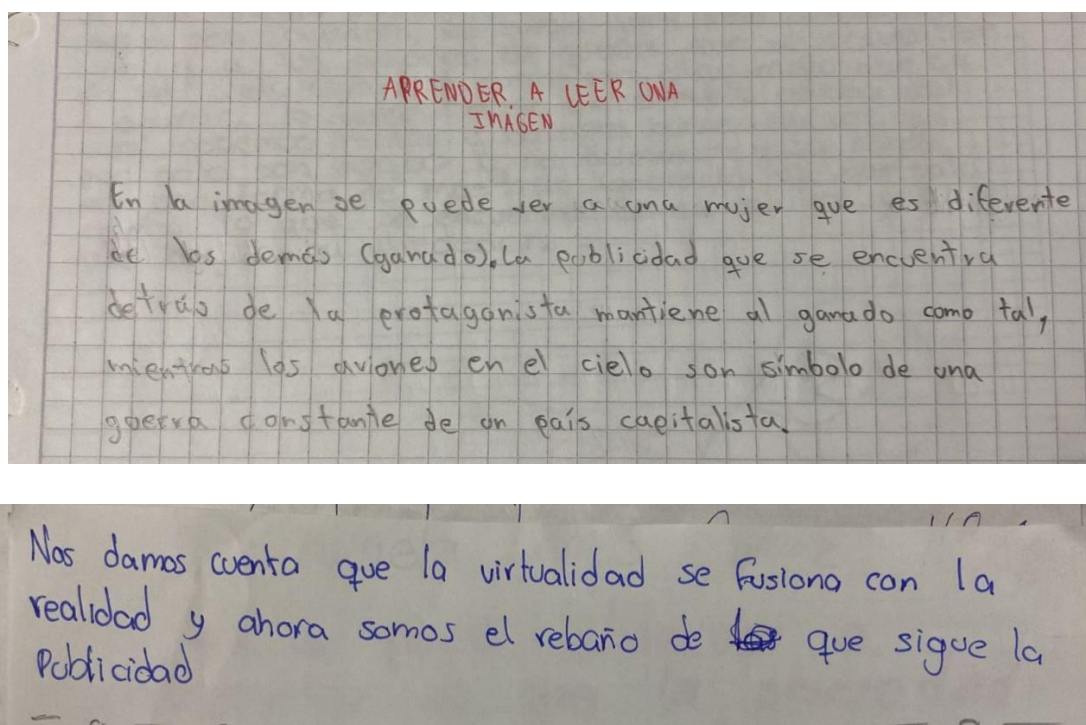 APRENDER A LEER UNA
IMAGEN
En la imagen se puede ver a una mujer que es diferente
de los demás (ganado). La publicidad que se encuentra
detrás de la protagonista mantiene al ganado como tal,
mientras los aviones en el cielo son símbolo de una
guerra constante de un país capitalista.
Nos damos cuenta que la virtualidad se fusiona con la
realidad y ahora somos el rebaño de que sigue la
Publicidad